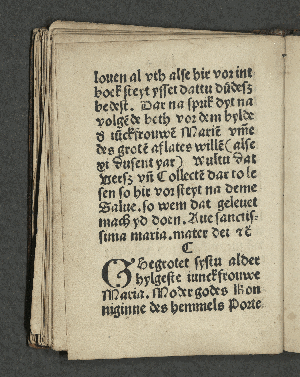 louen al vth alse hir vor int
boek steyt ysset dattu düdesz
bedest. Dar na sprik dyt na
volgēde beth vor dem bylde
d̕ iūckfrouwē Mariē vm̄e
des grotē aflates willē (alse
xi dusent yar) Wultu dat
Versz vn̄ Collectē dar to le
sen so hir vor steyt na deme
Salue. so wem dat geleuet
mach yd doen. Aue sanctis-
sima maria. mater dei ⁊c̄
C
GHegrotet systu alder
hylgeste iunckfrouwe
Maria. Moder godes Kon
niginne des hemmels Porte